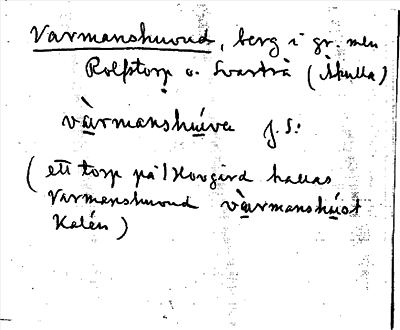 Varmanshuvud, berg i gr. mellan
Rolfstorp o. Svartrå (Äkulla)
vàrmanshúvə f. S:
(ett torp på Hovgård kallas
Varmanshuvud vàrmanshúst
Kalén)